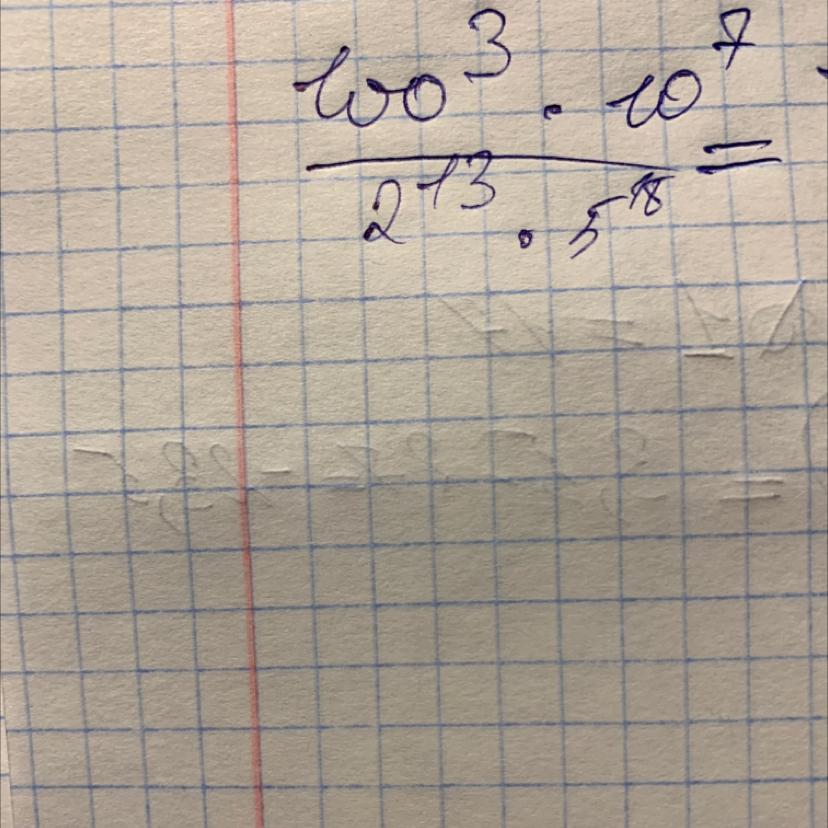 100³ · 10⁷
2¹³ · 5¹⁸ =